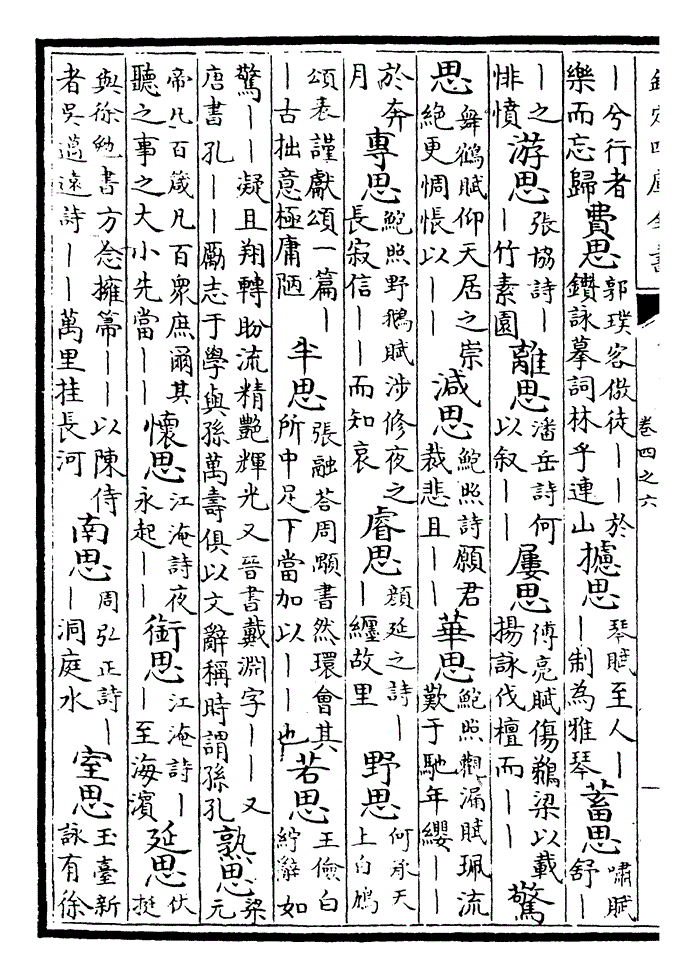 欽定四庫全書
卷四之六
｜兮行者樂而忘歸 費思 郭璞客傲徒｜｜於鑽詠摹詞林乎連山 攄思 琴賦至人｜｜制為雅琴 蓄思 嘯賦舒｜
｜之悱憤 游思 張協詩｜｜竹素園 離思 潘岳詩何以叙｜｜ 屢思 傅亮賦傷鵜梁以載揚詠伐檀而｜｜ 驚
思 舞鶴賦仰天居之崇絶更惆悵以｜｜ 減思 鮑照詩願君裁悲且｜｜ 華思 鮑照觀漏賦珮流歎于馳年纓｜｜
於奔月 專思 鮑照野鵝賦涉修夜之長寂信｜｜而知哀 睿思 顔延之詩｜｜纏故里 野思 何承天上白鳩
頌表謹獻頌一篇｜｜古拙意極庸陋 半思 張融荅周顒書然環會其所中足下當加以｜｜也 若思 王儉白紵辭如
驚｜｜凝且翔轉盼流精艷輝光又晉書戴淵字｜｜又唐書孔｜｜勵志于學與孫萬壽俱以文辭稱時謂孫孔 熟思 梁元
帝凡百箴凡百衆庶爾其聽之事之大小先當｜｜ 懷思 江淹詩夜永起｜｜ 銜思 江淹詩｜｜至海濱 延思 伏挺
與徐勉書方念擁篲｜｜以陳侍者吳邁遠詩｜｜萬里挂長河 南思 周弘正詩｜｜洞庭水 室思 玉臺新詠有徐